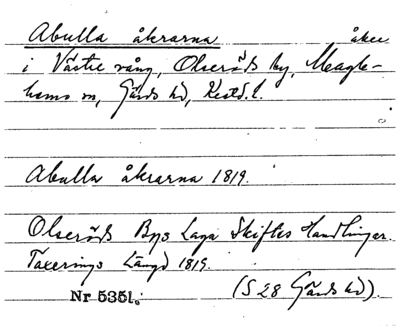 Abulla åkrarna åker
i Västre vång, Olseröds by, Magle-
hems sn, Gärds hd, Krstd. l.
Abulla åkrarna 1819.
Olseröds Bys Laga Skiftes Handlingar.
Taxerings Längd 1819.
Nr 5351. (S 28 Gärds hd).